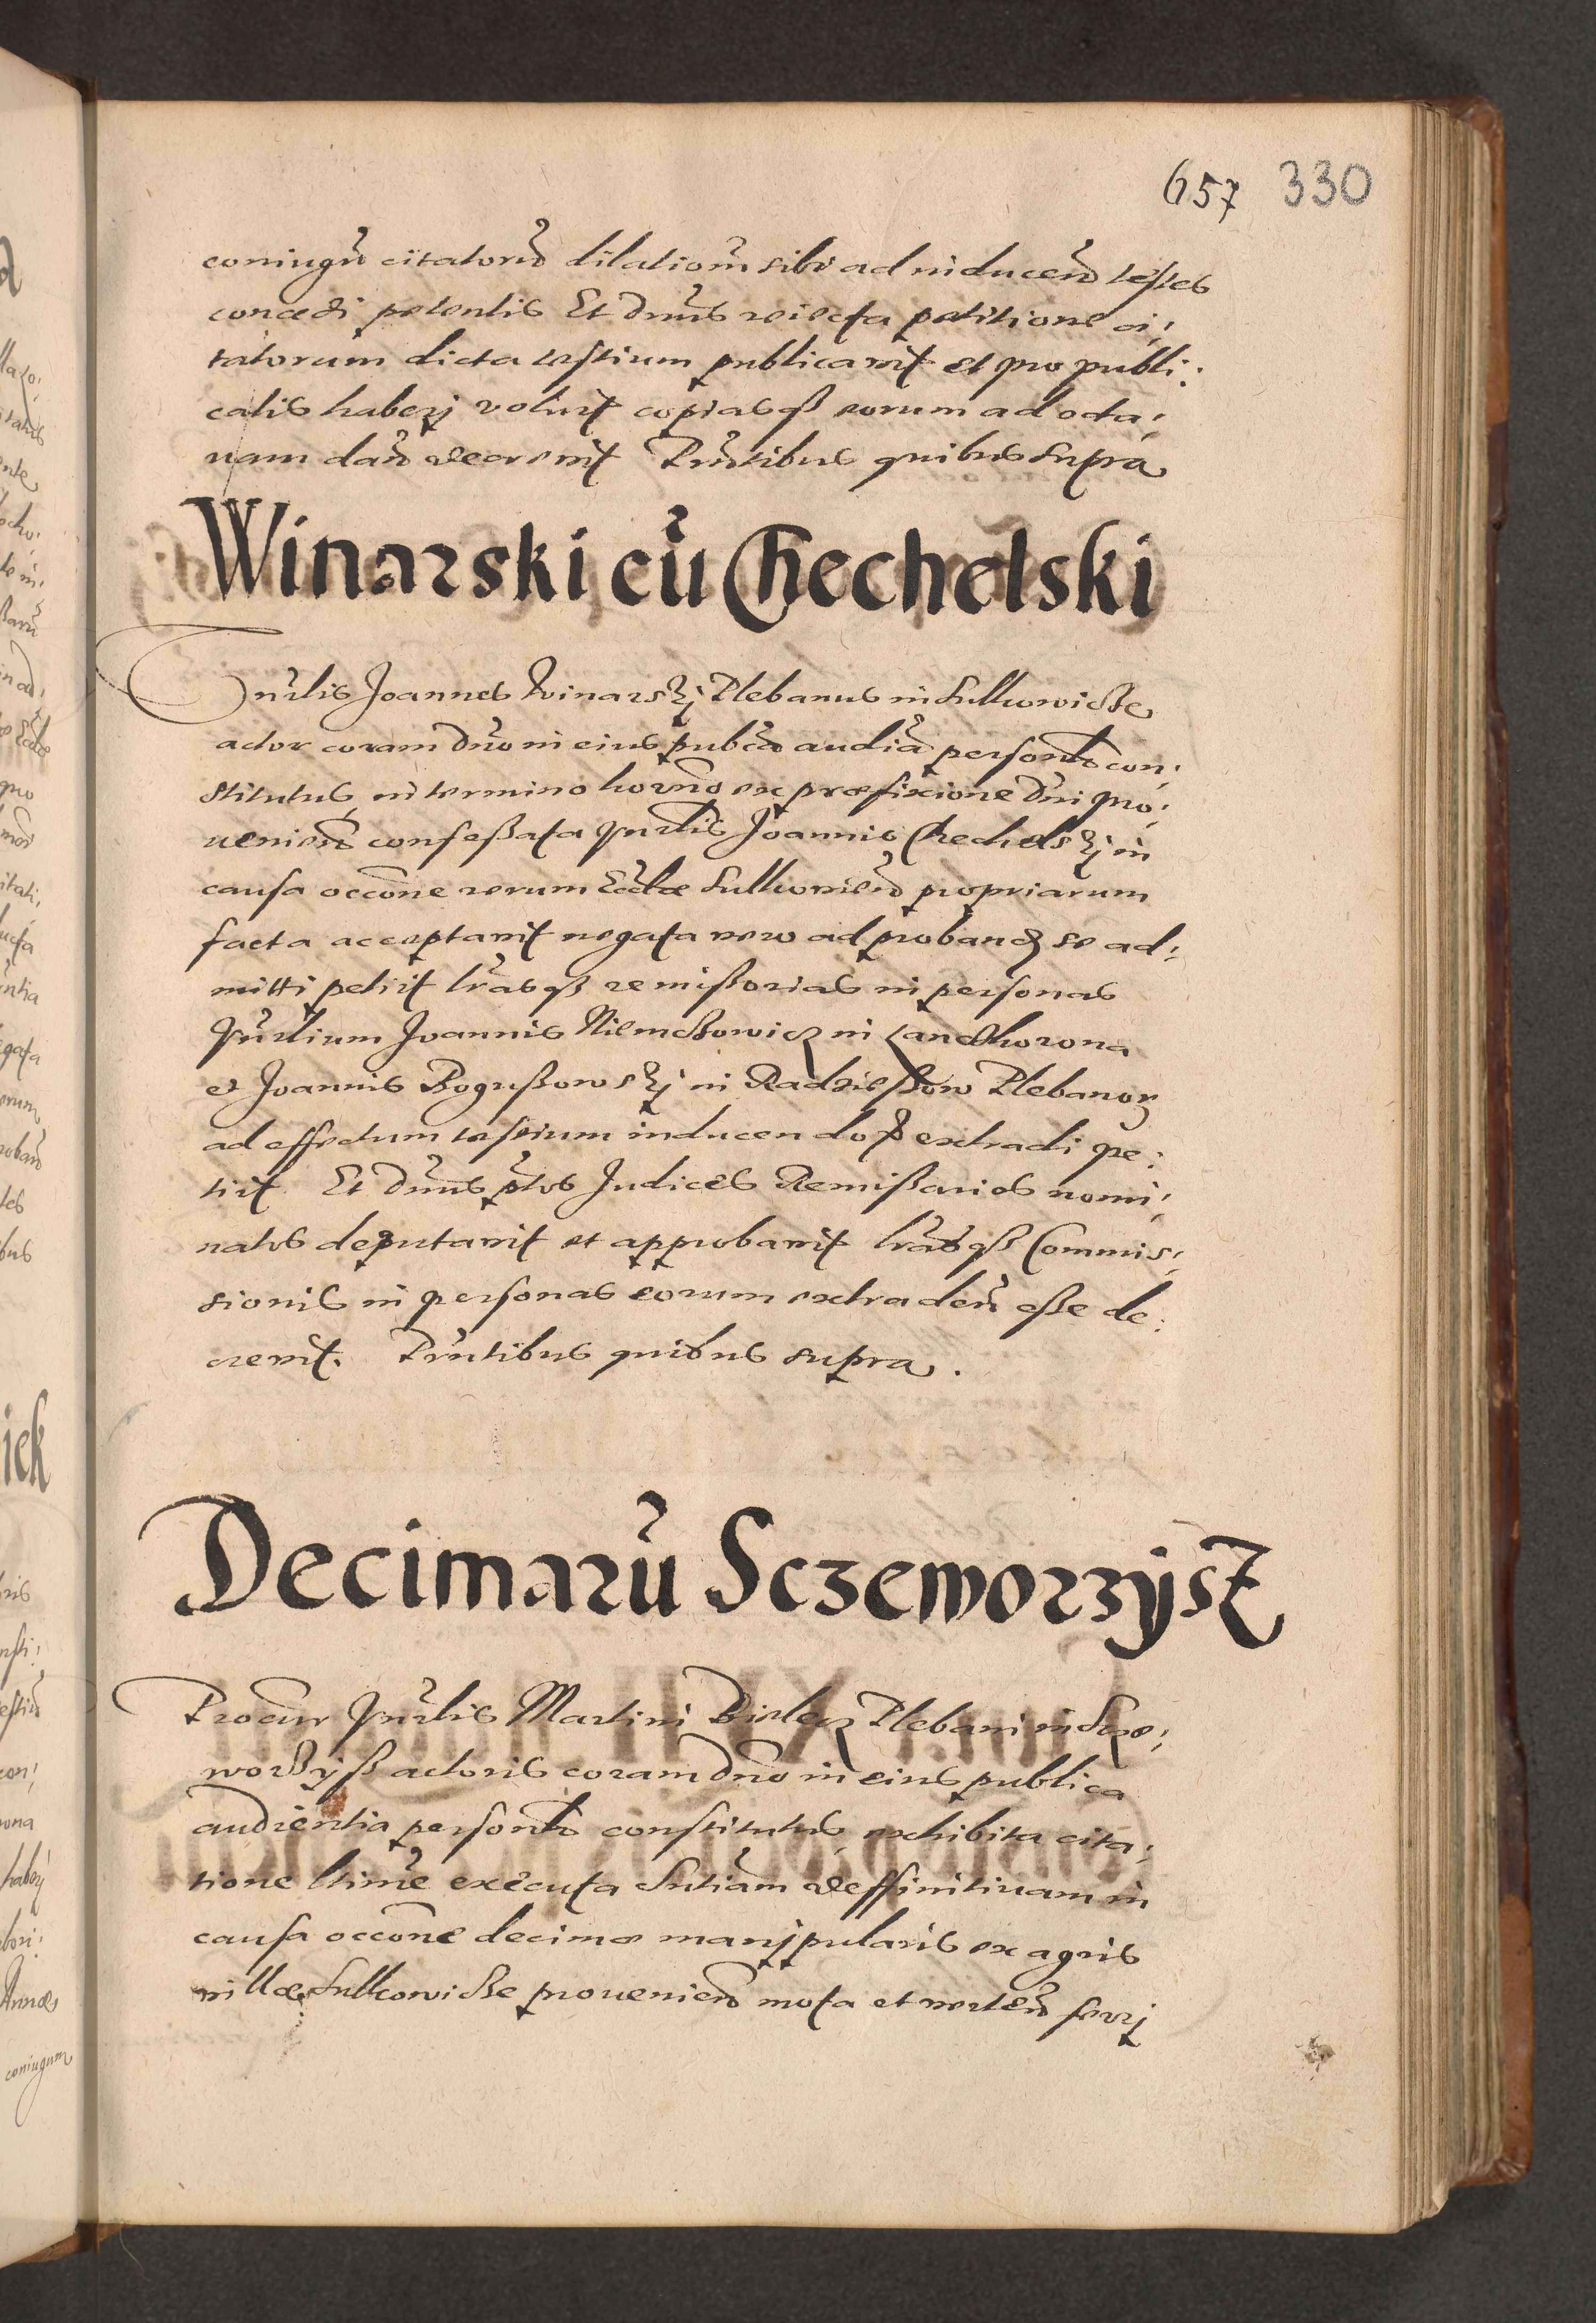 657 330
coniugũ citatorũ dilationẽ sibi ad inducenđ testes
concedi petentis Et Dnũs reiecta petitione ci:
tatorum dicta testium publicavit et pro publi:
catis haberj voluit copiasqß eorum ad octa:
uam danđ decrevit Pñtibus quibus supra
Winarski cũ Chechelski
Vnrlis Joannes Winarskj Plebanus in Sulkowicze
actor coram Dño in eius publĩca audiã personłr con:
stitutus, in termino horño ex præfixione Dñi pro:
ueniẽn confessata Vnrlis Joannis Chechelskj in
causa occõne rerum Eccłæ Sulkoviẽn propriarum
facta acceptavit negata vero ad probanđ se ad:
mitti petiit lrãsqß remissorias in personas
Vnrlium Joannis Niemczowicz in Lanczkorona
et Joannis Bogussowskj in Radzieszow Plebanorꝫ
ad effectum testium inducendorꝫ extradi pe:
tiit Et Dnũs ptõs Judices Remissarios nomi:
natos deputavit et approbavit lrãsqß Commis:
sionis in personas eorum extradenđ esse de:
crevit. Pñtibus quibus supra.
Decimarũ Sczeworzysz
Procũr Vnrlis Martini Bielecz Plebani in Scze:
worzyß actoris coram Dño in eius publica
audientia personłr constitutus, exhibita cita:
tione ltimẽ executa Sntiãm deffinitiuam in
causa occõne decimæ manipularis ex agris
villæ Sulkowicze proueniẽn mota et verteñ ferrj